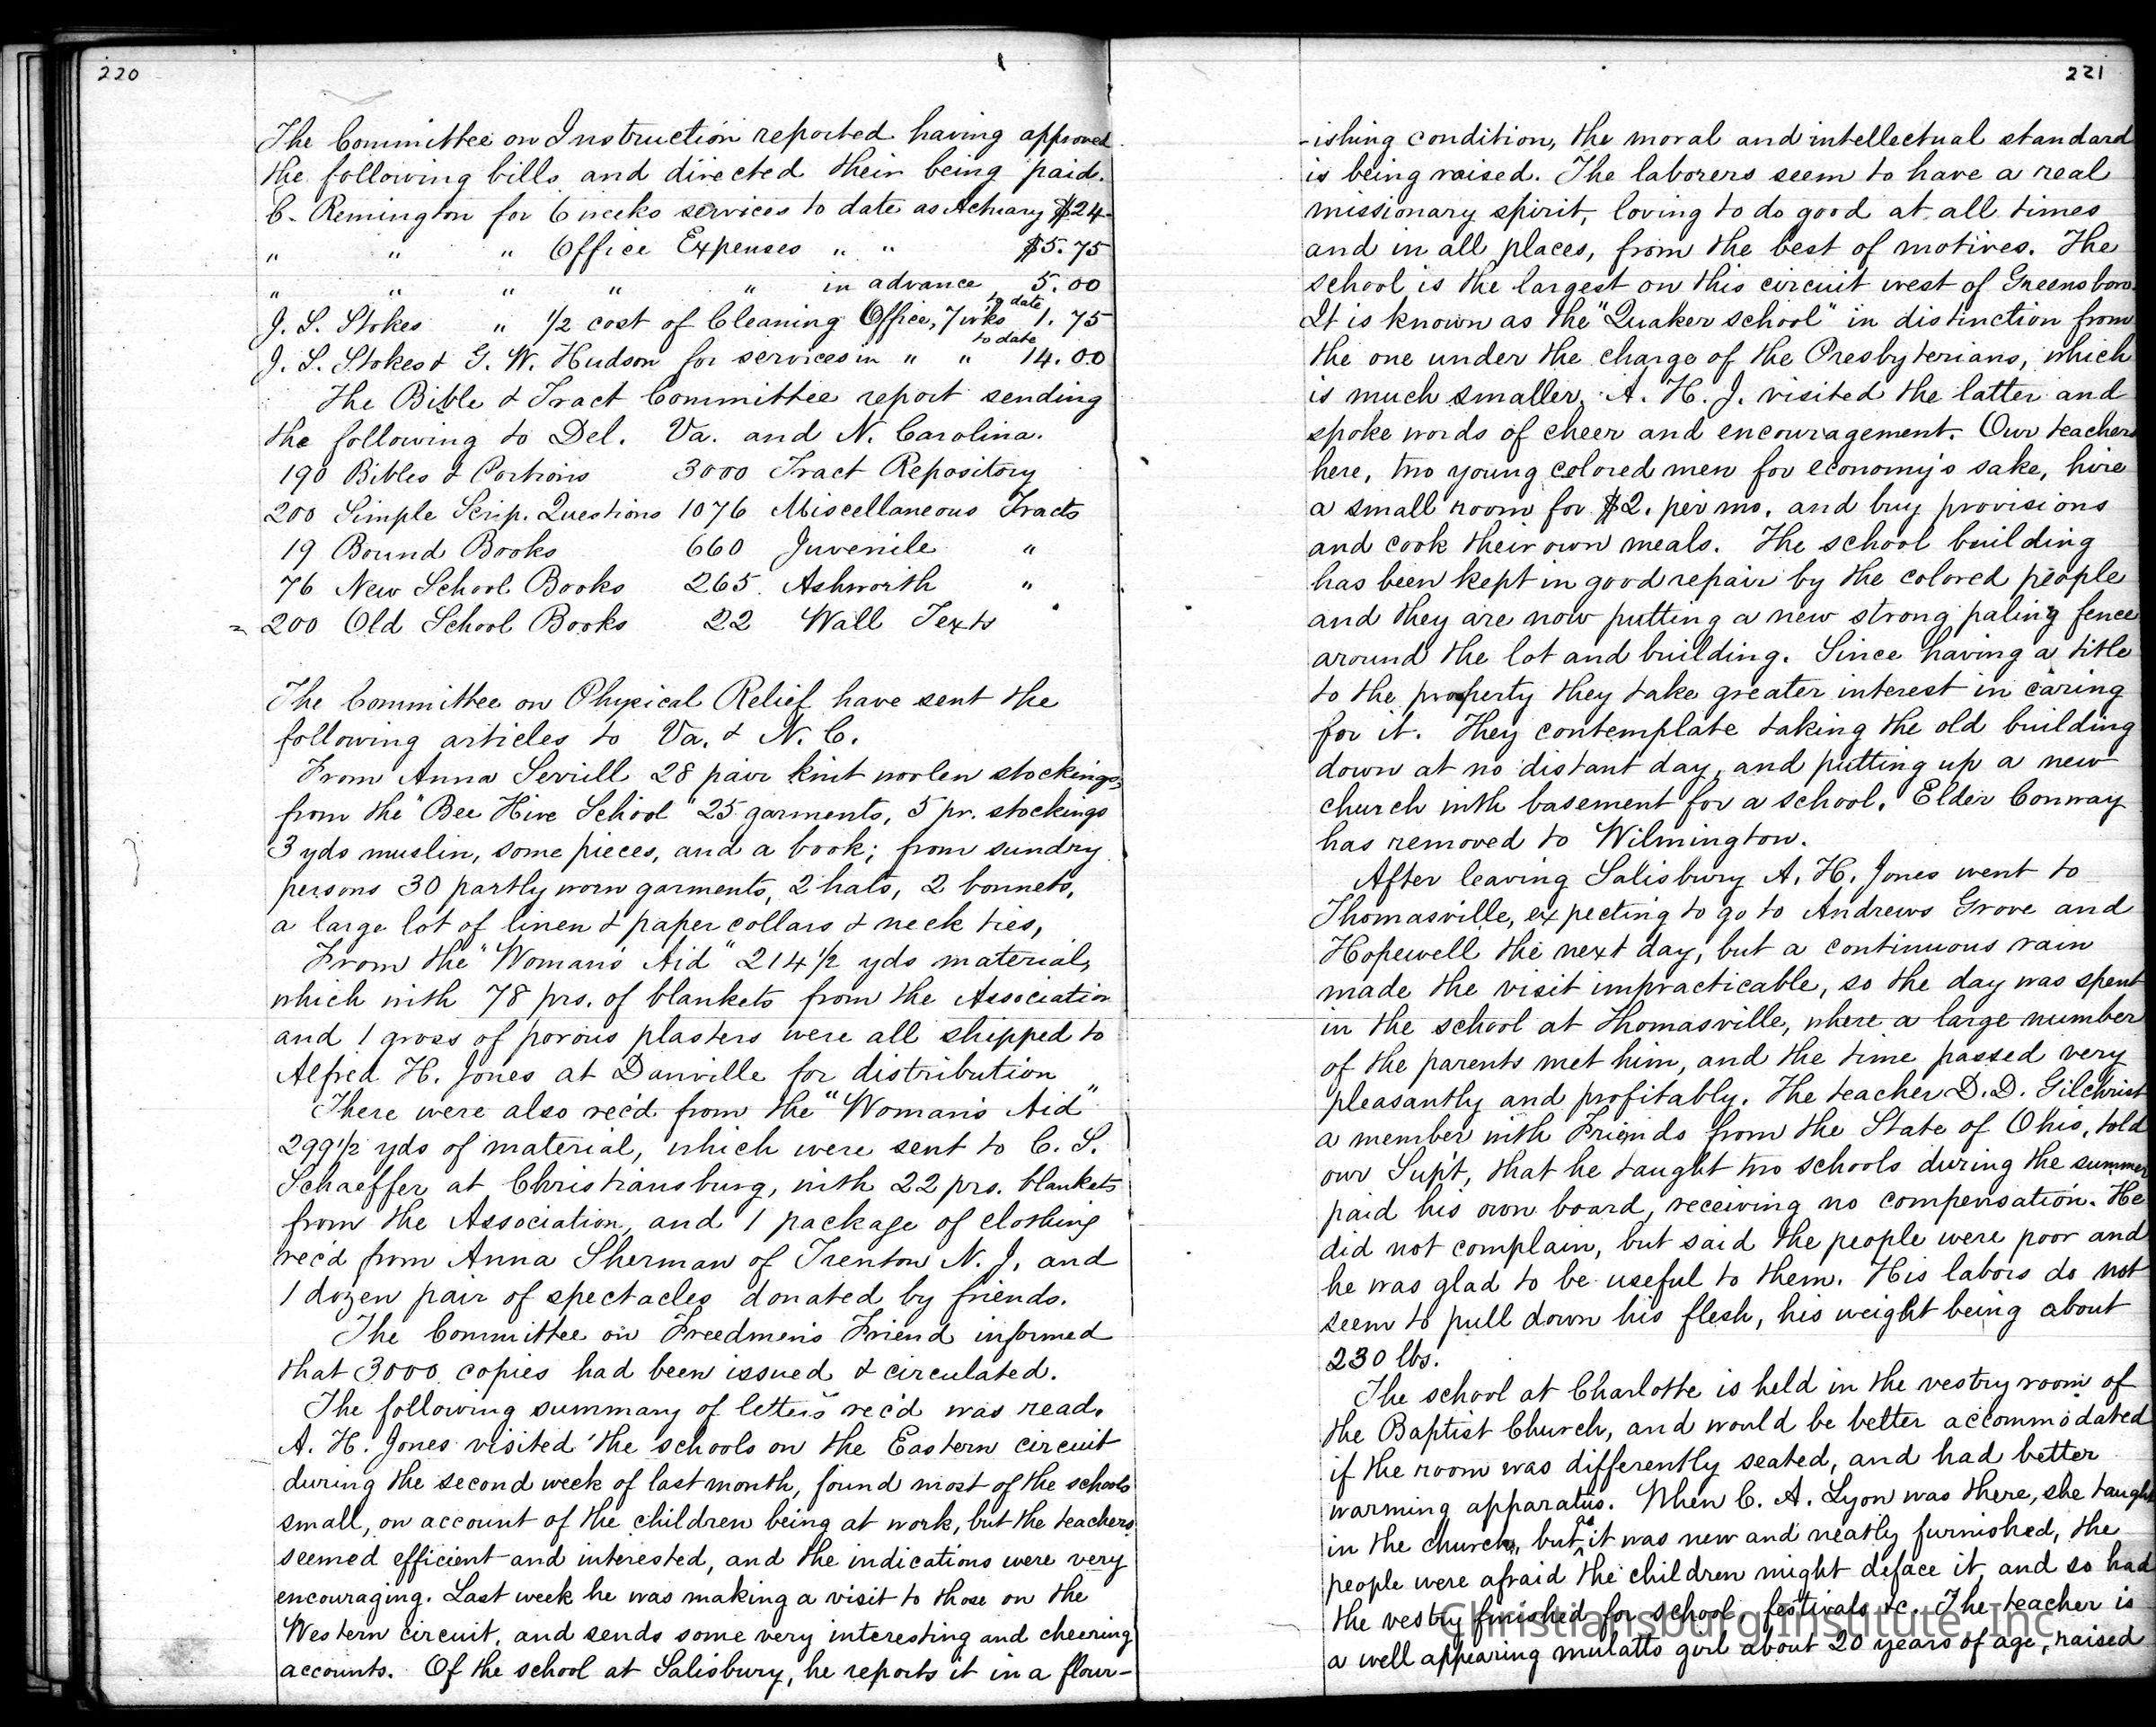 220
The Committee on Instruction reported having approved
the following bills and directed their being paid.
C. Remington for 6 weeks services to date as Actuary $24-
" " " Office Expenses " " $5.75
" " " " " in advance 5.00
J. S. Stokes " 1/2 cost of Cleaning Office, 7 wks to date 1.75
J. S. Stokes & G. W. Hudson for services in " " to date 14.00
The Bible & Tract Committee report sending
the following to Del. Va. and N. Carolina.
190 Bibles & Portions 3000 Tract Repository
200 Simple Scrip. Questions 1076 Miscellaneous Tracts
19 Bound Books 660 Juvenile "
76 New School Books 265 Ashworth "
200 Old School Books 22 Wall Texts
The Committee on Physical Relief have sent the
following articles to Va. & N. C.
From Anna Serrill 28 pair knit woolen stockings,
from the "Bee Hive School" 25 garments, 5 pr. stockings
3 yds muslin, some pieces, and a book; from sundry
persons 30 partly worn garments, 2 hats, 2 bonnets,
a large lot of linen & paper collars & neck ties,
From the "Woman's Aid" 214 1/2 yds material,
which with 78 prs. of blankets from the Association
and 1 gross of porous plasters were all shipped to
Alfred H. Jones at Danville for distribution
There were also rec'd from the "Woman's Aid"
299 1/2 yds of material, which were sent to C. S.
Schaeffer at Christiansburg, with 22 prs. blankets
from the Association, and 1 package of clothing
rec'd from Anna Sherman of Trenton N. J. and
1 dozen pair of spectacles donated by friends.
The Committee on Freedmen's Friend informed
that 3000 copies had been issued & circulated.
The following summary of letters rec'd was read.
A. H. Jones visited the schools on the Eastern circuit
during the second week of last month, found most of the schools
small, on account of the children being at work, but the teachers
seemed efficient and interested, and the indications were very
encouraging. Last week he was making a visit to those on the
Western circuit, and sends some very interesting and cheering
accounts. Of the school at Salisbury, he reports it in a flour-
221
-ishing condition, the moral and intellectual standard
is being raised. The laborers seem to have a real
missionary spirit, loving to do good at all times
and in all places, from the best of motives. The
school is the largest on this circuit west of Greensboro.
It is known as the "Quaker school" in distinction from
the one under the charge of the Presbyterians, which
is much smaller. A. H. J. visited the latter and
spoke words of cheer and encouragement. Our teachers
here, two young colored men for economy's sake, hire
a small room for $2. per mo. and buy provisions
and cook their own meals. The school building
has been kept in good repair by the colored people
and they are now putting a new strong paling fence
around the lot and building. Since having a title
to the property they take greater interest in caring
for it. They contemplate taking the old building
down at no distant day, and putting up a new
church with basement for a school. Elder Conway
has removed to Wilmington.
After leaving Salisbury A. H. Jones went to
Thomasville, expecting to go to Andrews Grove and
Hopewell the next day, but a continuous rain
made the visit impracticable, so the day was spent
in the school at Thomasville, where a large number
of the parents met him, and the time passed very
pleasantly and profitably. The teacher D. D. Gilchrist
a member with Friends from the State of Ohio, told
our Sup't, that he taught two schools during the summer
paid his own board, receiving no compensation. He
did not complain, but said the people were poor and
he was glad to be useful to them. His labors do not
seem to pull down his flesh, his weight being about
230 lbs.
The school at Charlotte is held in the vestry room of
the Baptist Church, and would be better accommodated
if the room was differently seated, and had better
warming apparatus. When C. A. Lyon was there, she taught
in the church, but as it was new and neatly furnished, the
people were afraid the children might deface it, and so had
the vestry finished for school, festivals &c. The teacher is
a well appearing mulatto girl about 20 years of age, raised
Christiansburg Institute, Inc.